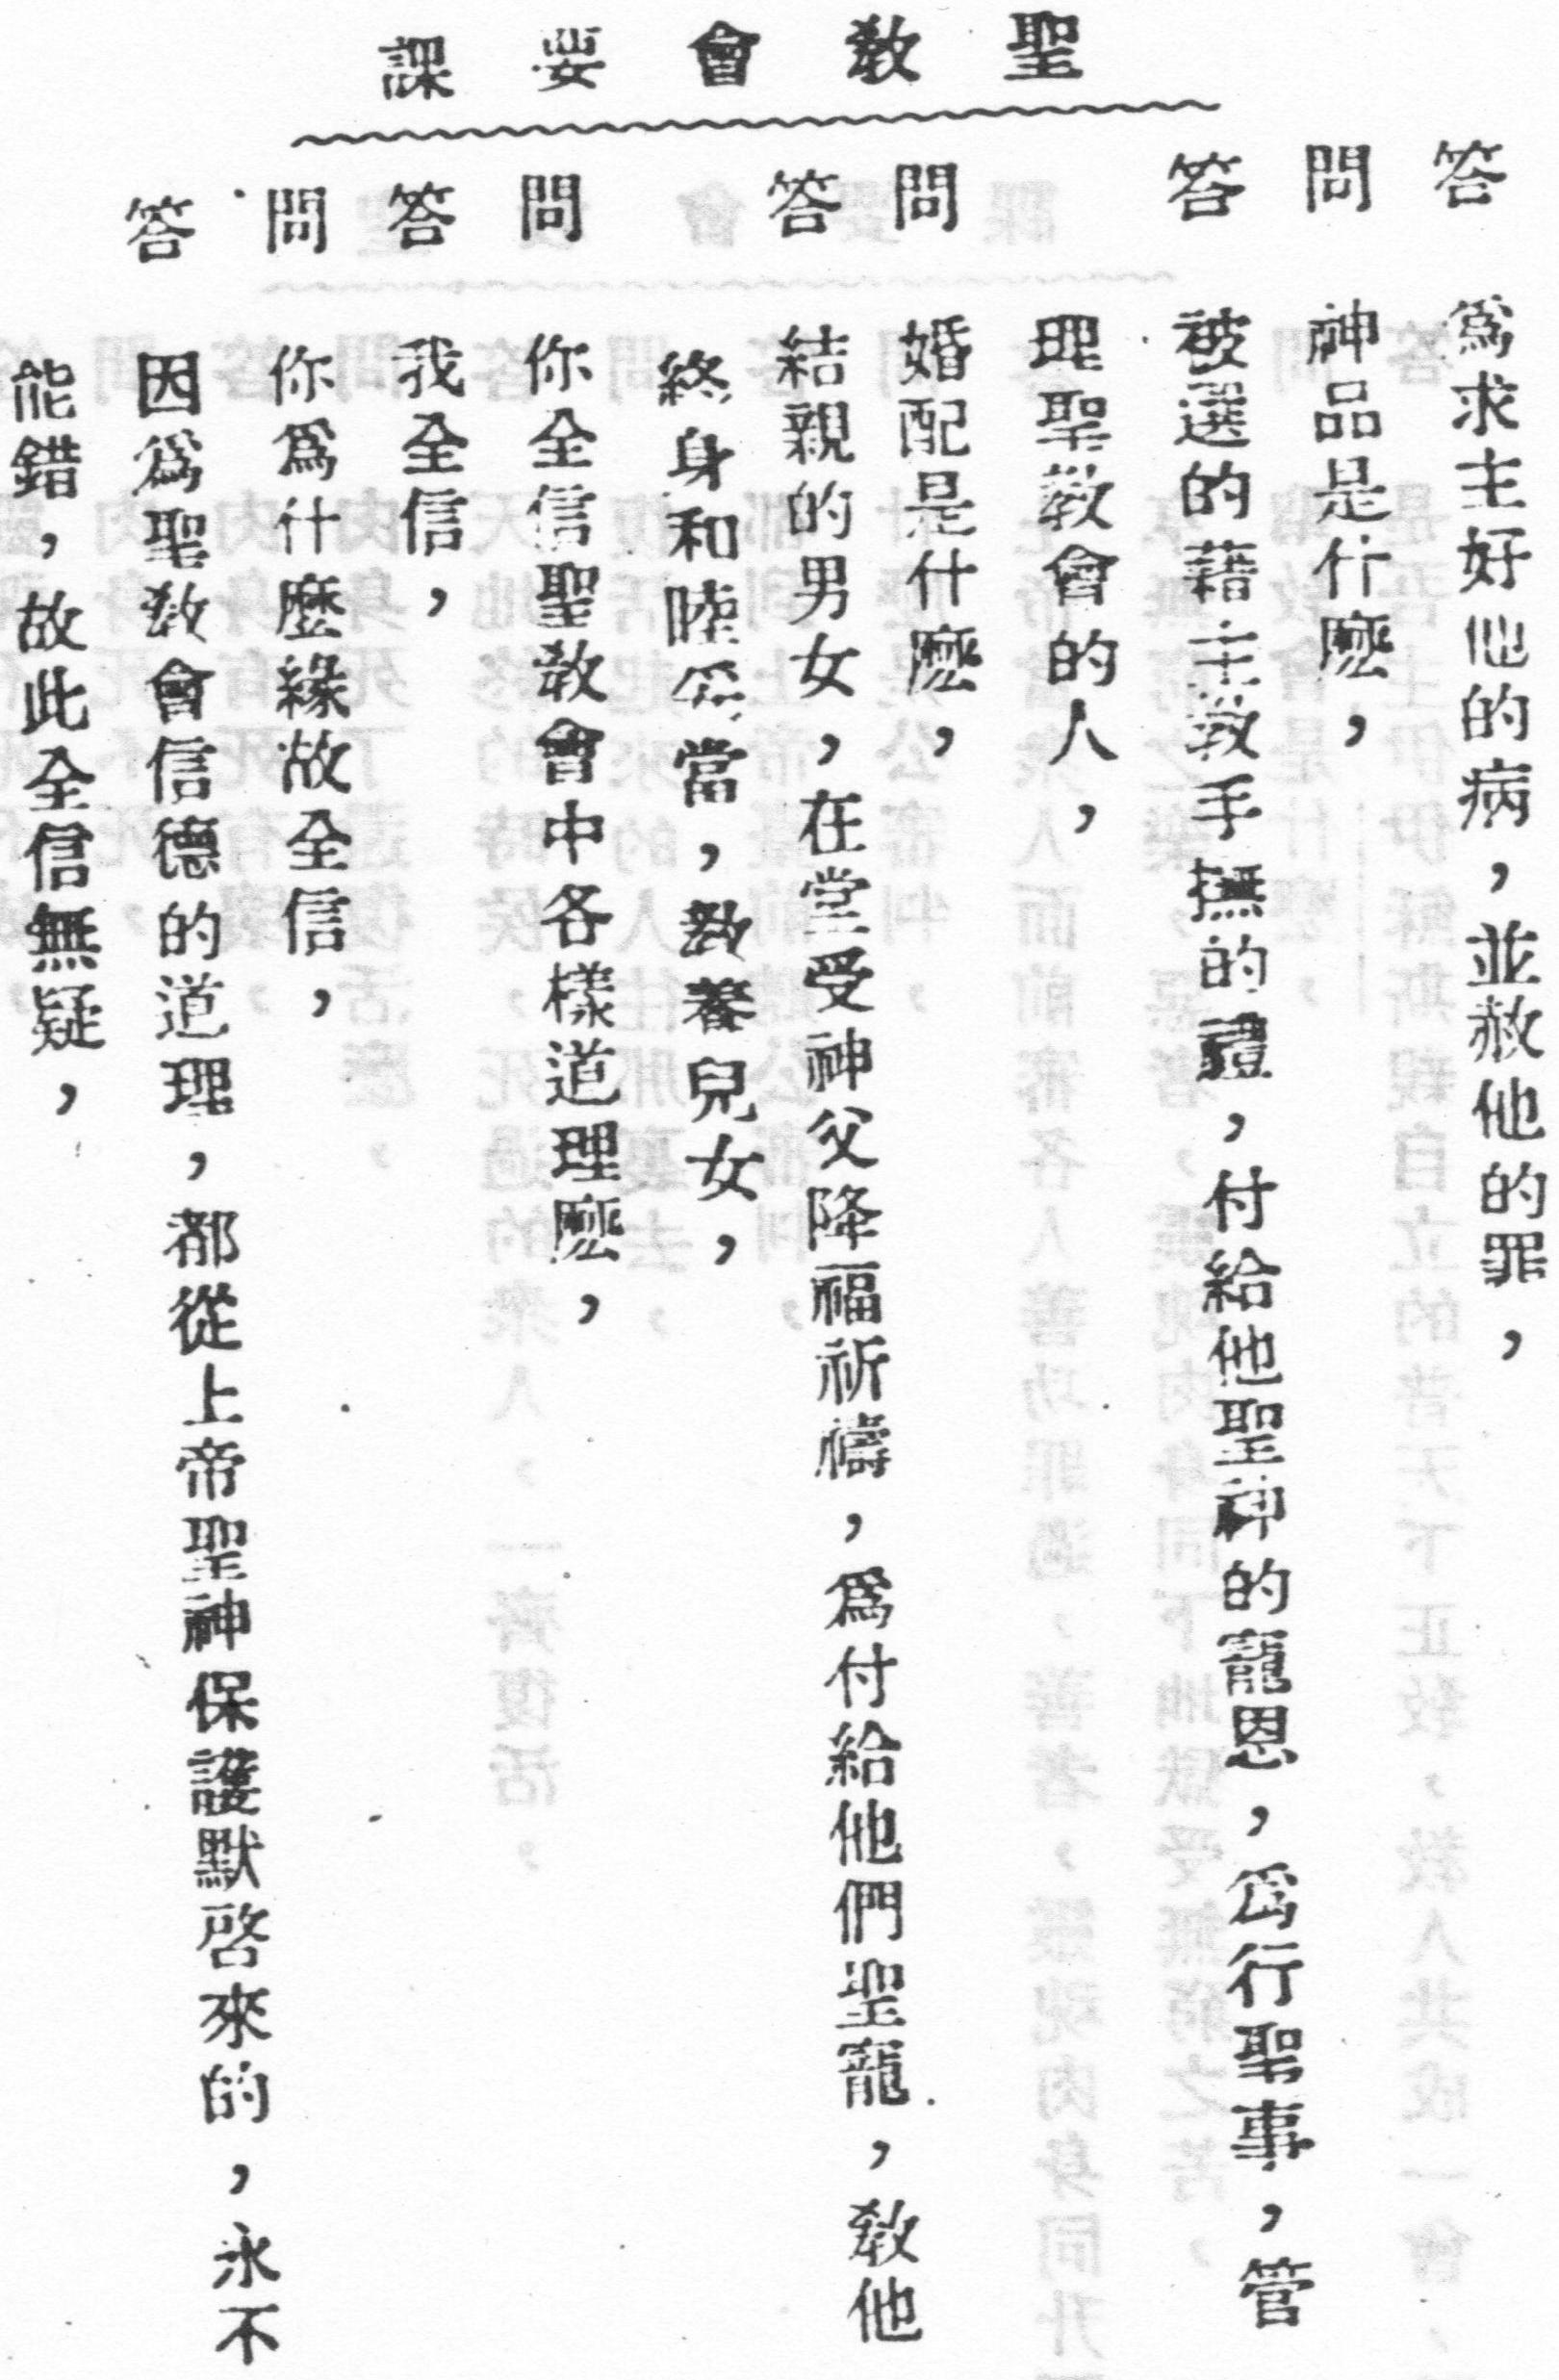 聖教會要課
答　為求主好他的病，並赦他的罪，
問　神品是什麼，
答　被選的藉主教手撫的禮，付給他聖神的寵恩，為行聖事，管
理聖教會的人，
問　婚配是什麼，
答　結親的男女，在堂受神父降福祈禱，為付給他們聖寵，教他
終身和睦爲當，教養兒女，
問　你全信聖教會中各樣道理麼，
答　我全信，
問　你為什麼緣故全信，
答　因為聖教會信德的道理，都從上帝聖神保護默啓來的，永不
能錯，故此全信無疑，